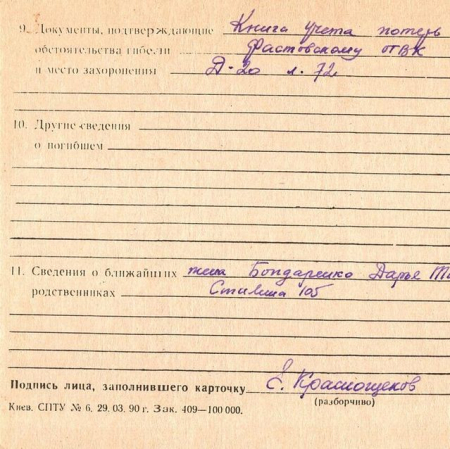 9. Документы, подтверждающие Книга учета потерь
обстоятельства гибели Фастовскому ПВК
и место захоронения Д-20 л. 72
10. Другие сведения
о погибшем
11. Сведения о ближайших жена Бондаренко Дарья
родственниках Сталина 105
Подпись лица, заполнившего карточку С. Краснощеков
(разборчиво)
Киев. СПТУ № 6. 29. 03. 90 г. Зак. 409—100 000.